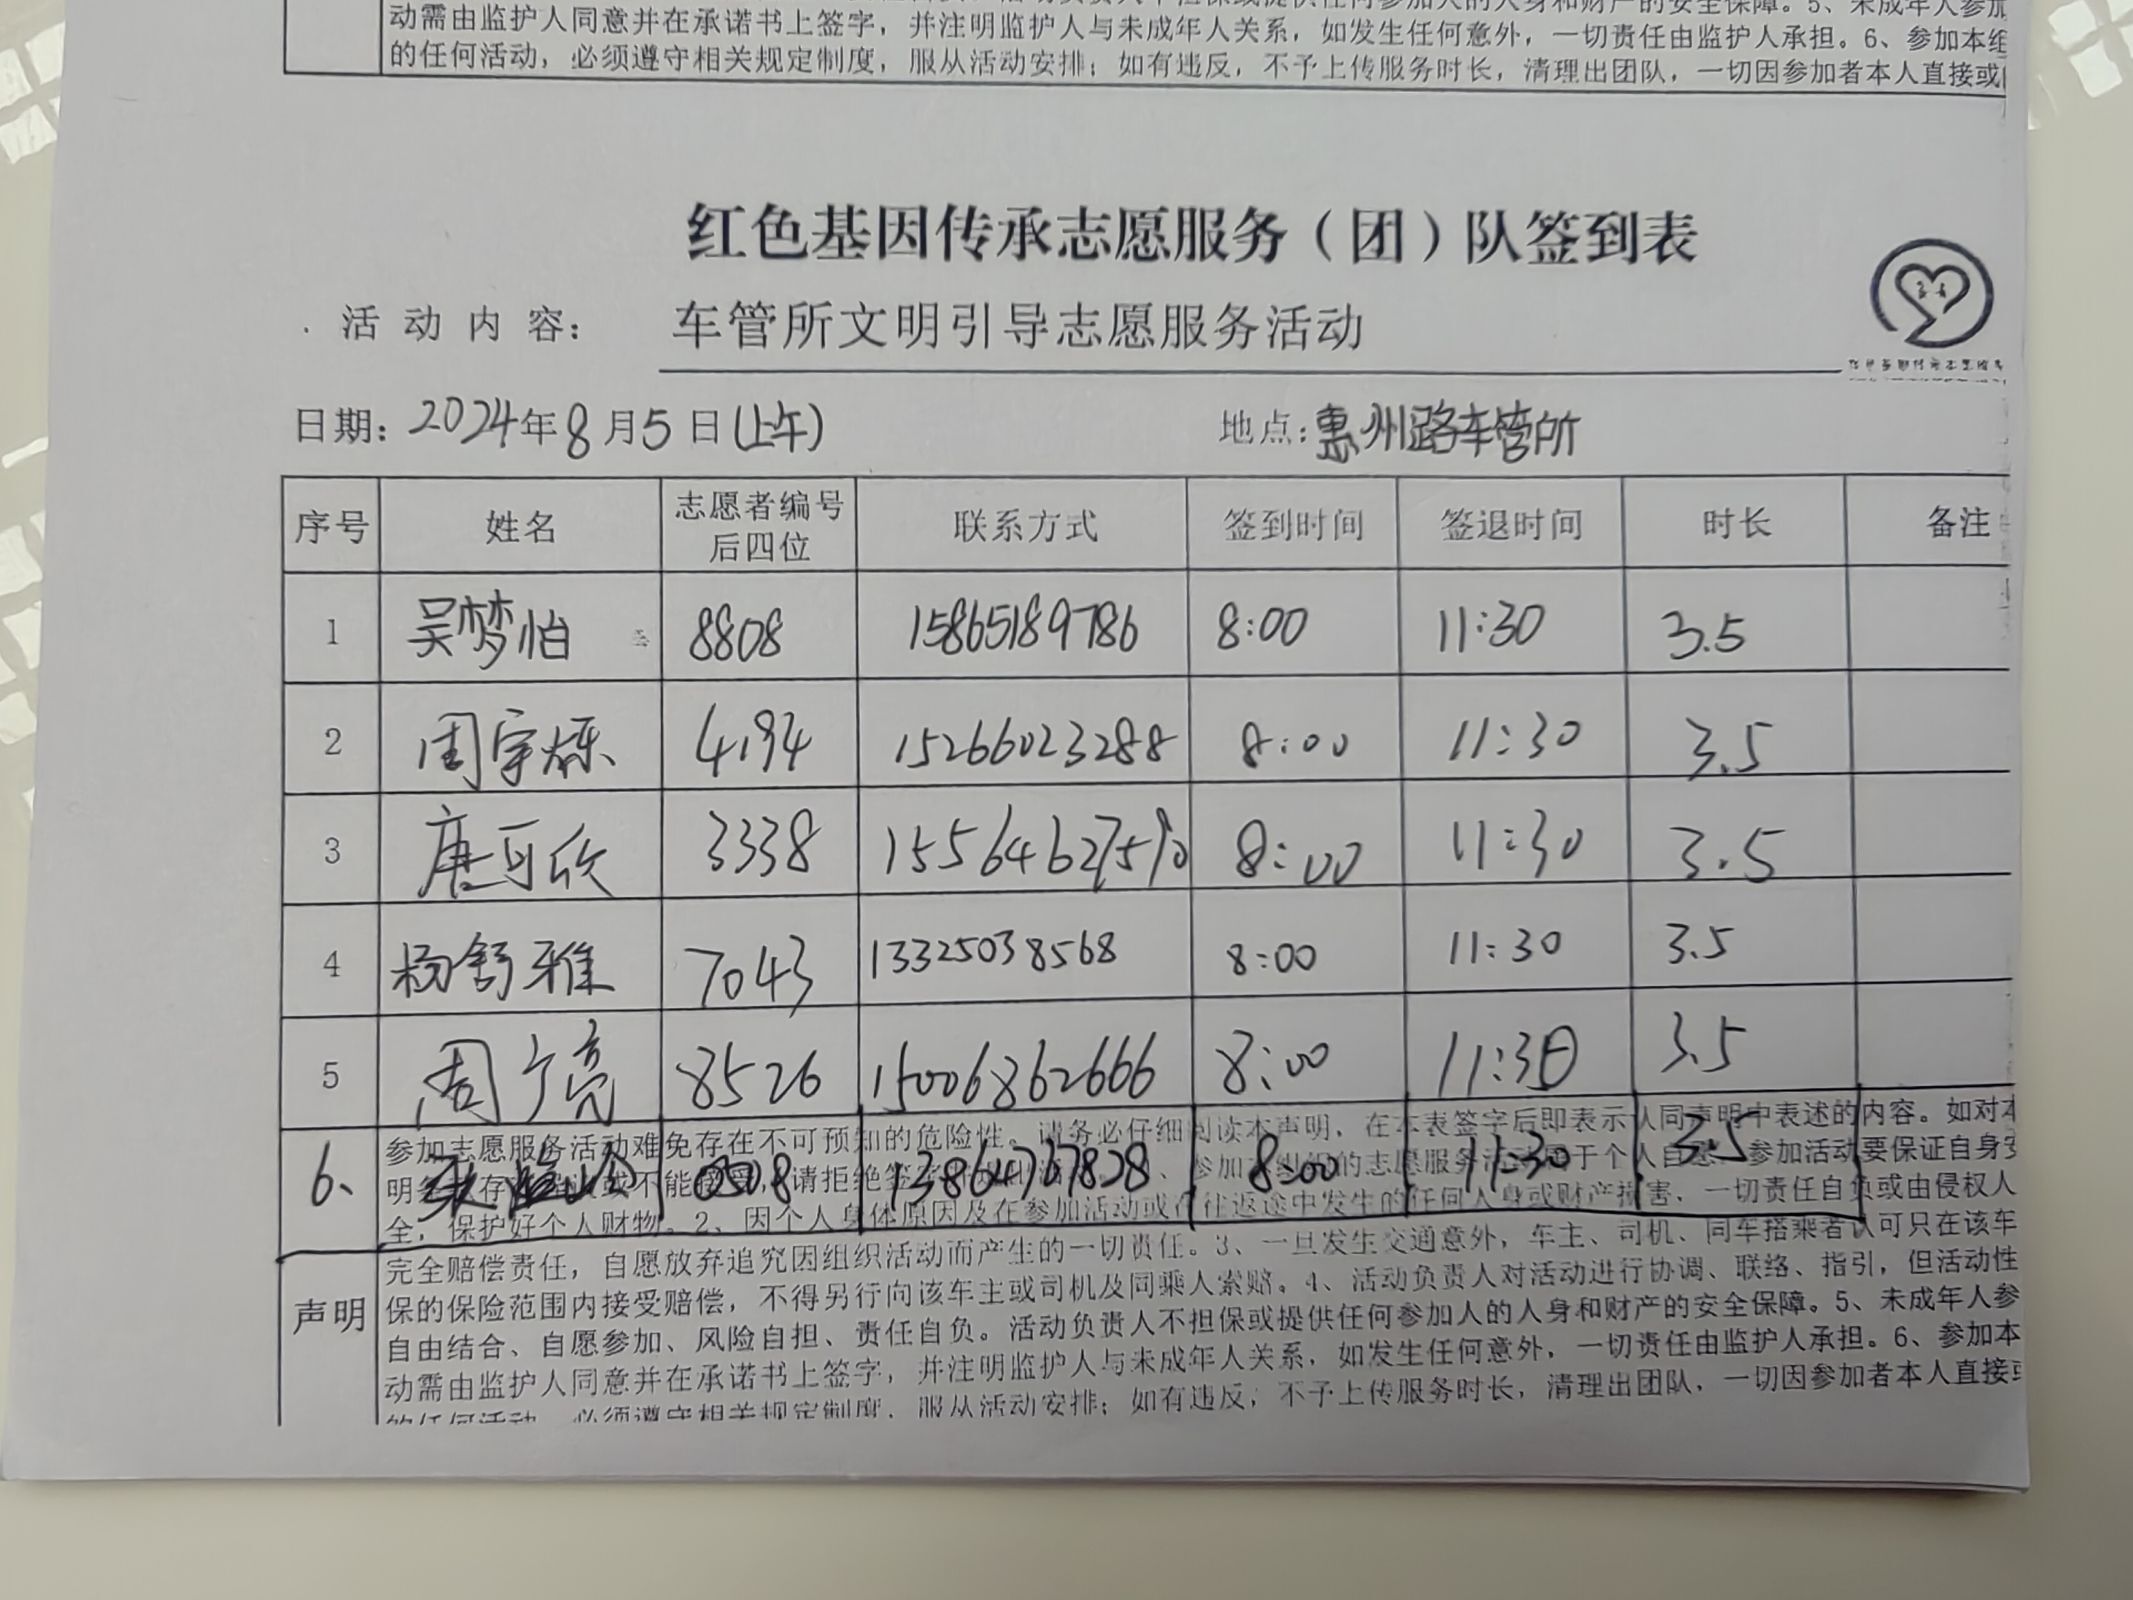 动需由监护人同意并在承诺书上签字，并注明监护人与未成年人关系，如发生任何意外，一切责任由监护人承担。6、参加本组
的任何活动，必须遵守相关规定制度，服从活动安排；如有违反，不予上传服务时长，清理出团队，一切因参加者本人直接或
红色基因传承志愿服务（团）队签到表
活动内容： 车管所文明引导志愿服务活动
日期：2024年8月5日(上午) 地点：惠州路车管所
序号 姓名 志愿者编号后四位 联系方式 签到时间 签退时间 时长 备注
1 吴梦怡 8808 15865189786 8:00 11:30 3.5
2 周宇烁 4194 15266023288 8:00 11:30 3.5
3 唐可欣 3338 15564627590 8:00 11:30 3.5
4 杨舒雅 7043 13325038568 8:00 11:30 3.5
5 周广亮 8526 15006862666 8:00 11:30 3.5
6、 0508 13864767828 8:00 11:30 3.5
参加志愿服务活动难免存在不可预知的危险性。请务必仔细阅读本声明，在本表签字后即表示认同声明中表述的内容。如对本
明 存 不能 请拒绝签 参加 的志愿服务 于个人自 参加活动要保证自身安
全，保护好个人财物。2、因个人身体原因及在参加活动或在往返途中发生的任何人身或财产损害，一切责任自负或由侵权人
声明
完全赔偿责任，自愿放弃追究因组织活动而产生的一切责任。3、一旦发生交通意外，车主、司机、同车搭乘者认可只在该车
保的保险范围内接受赔偿，不得另行向该车主或司机及同乘人索赔。4、活动负责人对活动进行协调、联络、指引，但活动性
自由结合、自愿参加、风险自担、责任自负。活动负责人不担保或提供任何参加人的人身和财产的安全保障。5、未成年人参
动需由监护人同意并在承诺书上签字，并注明监护人与未成年人关系，如发生任何意外，一切责任由监护人承担。6、参加本
的任何活动，必须遵守相关规定制度，服从活动安排；如有违反，不予上传服务时长，清理出团队，一切因参加者本人直接或